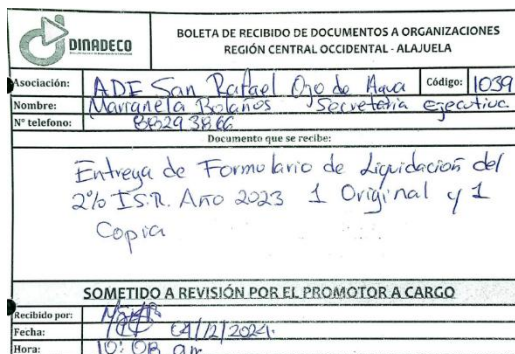 DINADECO
BOLETA DE RECIBIDO DE DOCUMENTOS A ORGANIZACIONES
REGIÓN CENTRAL OCCIDENTAL - ALAJUELA
Asociación: ADE San Rafael Ojo de Agua Código: 1039
Nombre: Marianela Bolaños Secretaria ejecutiva
N° telefono: 8829 3866
Documento que se recibe:
Entrega de Formulario de Liquidación del
2% I.S.R. Año 2023 1 Original y 1
Copia
SOMETIDO A REVISIÓN POR EL PROMOTOR A CARGO
Recibido por:
Fecha: 04/12/2024.
Hora: 10:08 am